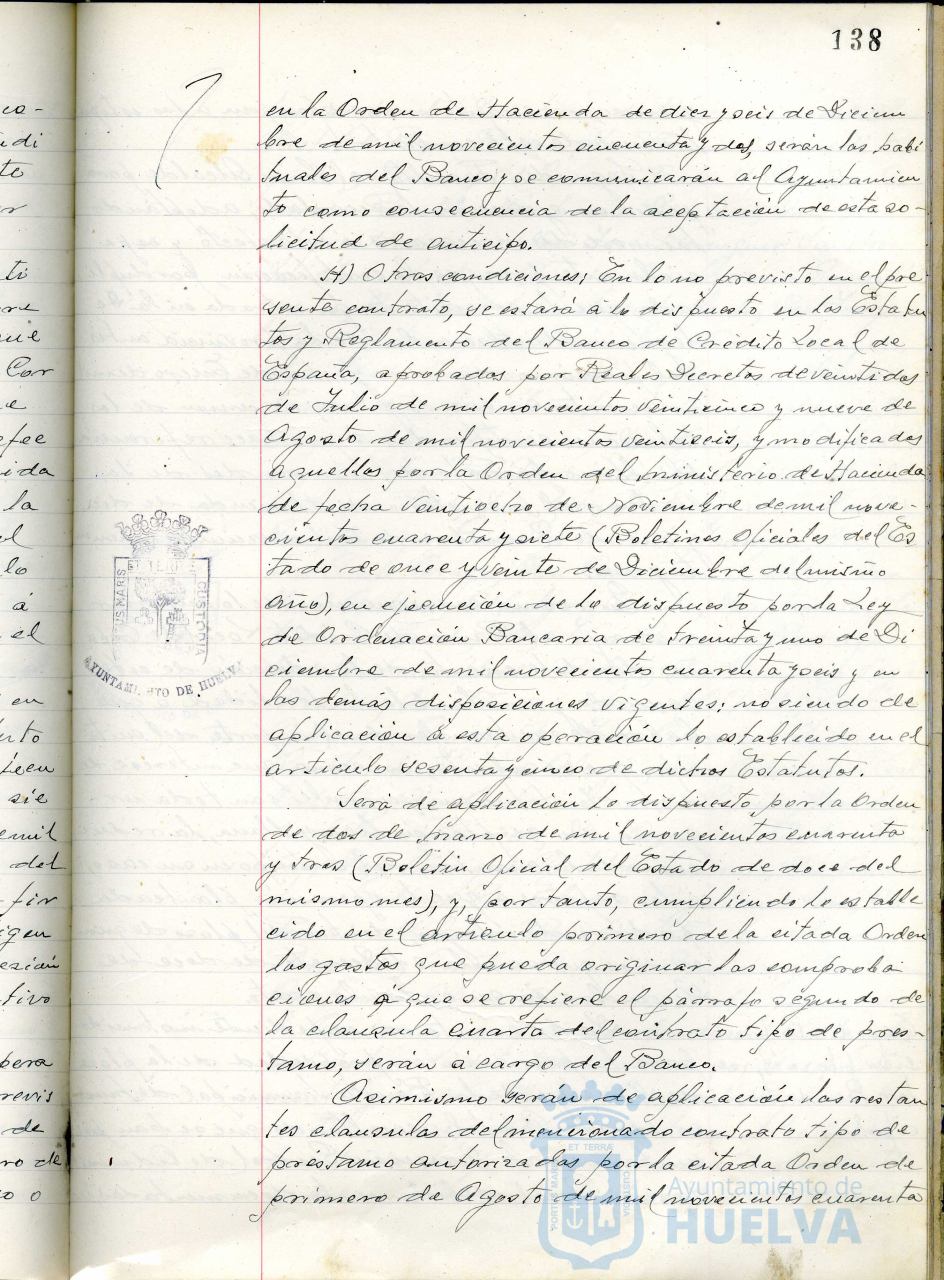 138
en la Orden de Hacienda de diez y seis de Diciem
bre de mil novecientos cincuenta y dos, serán las habi
tuales del Banco y se comunicarán al Ayuntamien
to como consecuencia de la aceptación de esta so-
licitud de anticipo.
H) Otras condiciones: En lo no previsto en el pre
sente contrato, se estará á lo dispuesto en los Estatu
tos y Reglamento del Banco de Crédito Local de
España, aprobados por Reales Decretos de veintidos
de Julio de mil novecientos veinticinco y nueve de
Agosto de mil novecientos veintiseis, y modificados
aquellos por la Orden del Ministerio de Hacienda
de fecha veintiocho de Noviembre de mil nove-
cientos cuarenta y siete (Boletines Oficiales del Es
tado de once y veinte de Diciembre del mismo
año), en ejecución de lo dispuesto por la Ley
de Ordenación Bancaria de treinta y uno de Di
ciembre de mil novecientos cuarenta y seis y en
las demás disposiciones vigentes; no siendo de
aplicación á esta operación lo establecido en el
articulo sesenta y cinco de dichos Estatutos.
Será de aplicación lo dispuesto por la Orden
de dos de Marzo de mil novecientos cuarenta
y tres (Boletin Oficial del Estado de doce del
mismo mes), y, por tanto, cumpliendo lo estable
cido en el articulo primero de la citada Orden
los gastos que pueda originar las comproba
ciones á que se refiere el párrafo segundo de
la clausula cuarta del contrato tipo de prés-
tamo, serán á cargo del Banco.
Asimismo serán de aplicación las restan
tes clausulas del mencionado contrato tipo de
préstamo autorizadas por la citada Orden de
primero de Agosto de mil novecientos cuarenta
co-
ndi
te
or
ti
que
Cor
efee
ida
la
el
lo
á
el
en
sie
emil
del
fir
igen
esión
tivo
pera
revis
de
ro de
o o
ET TERRE
CUSTODIA
PORTUS MARIS
AYUNTAMIENTO DE HUELVA
ET TERRÆ
PORTUS MARIS
CUSTODIA
Ayuntamiento de
HUELVA